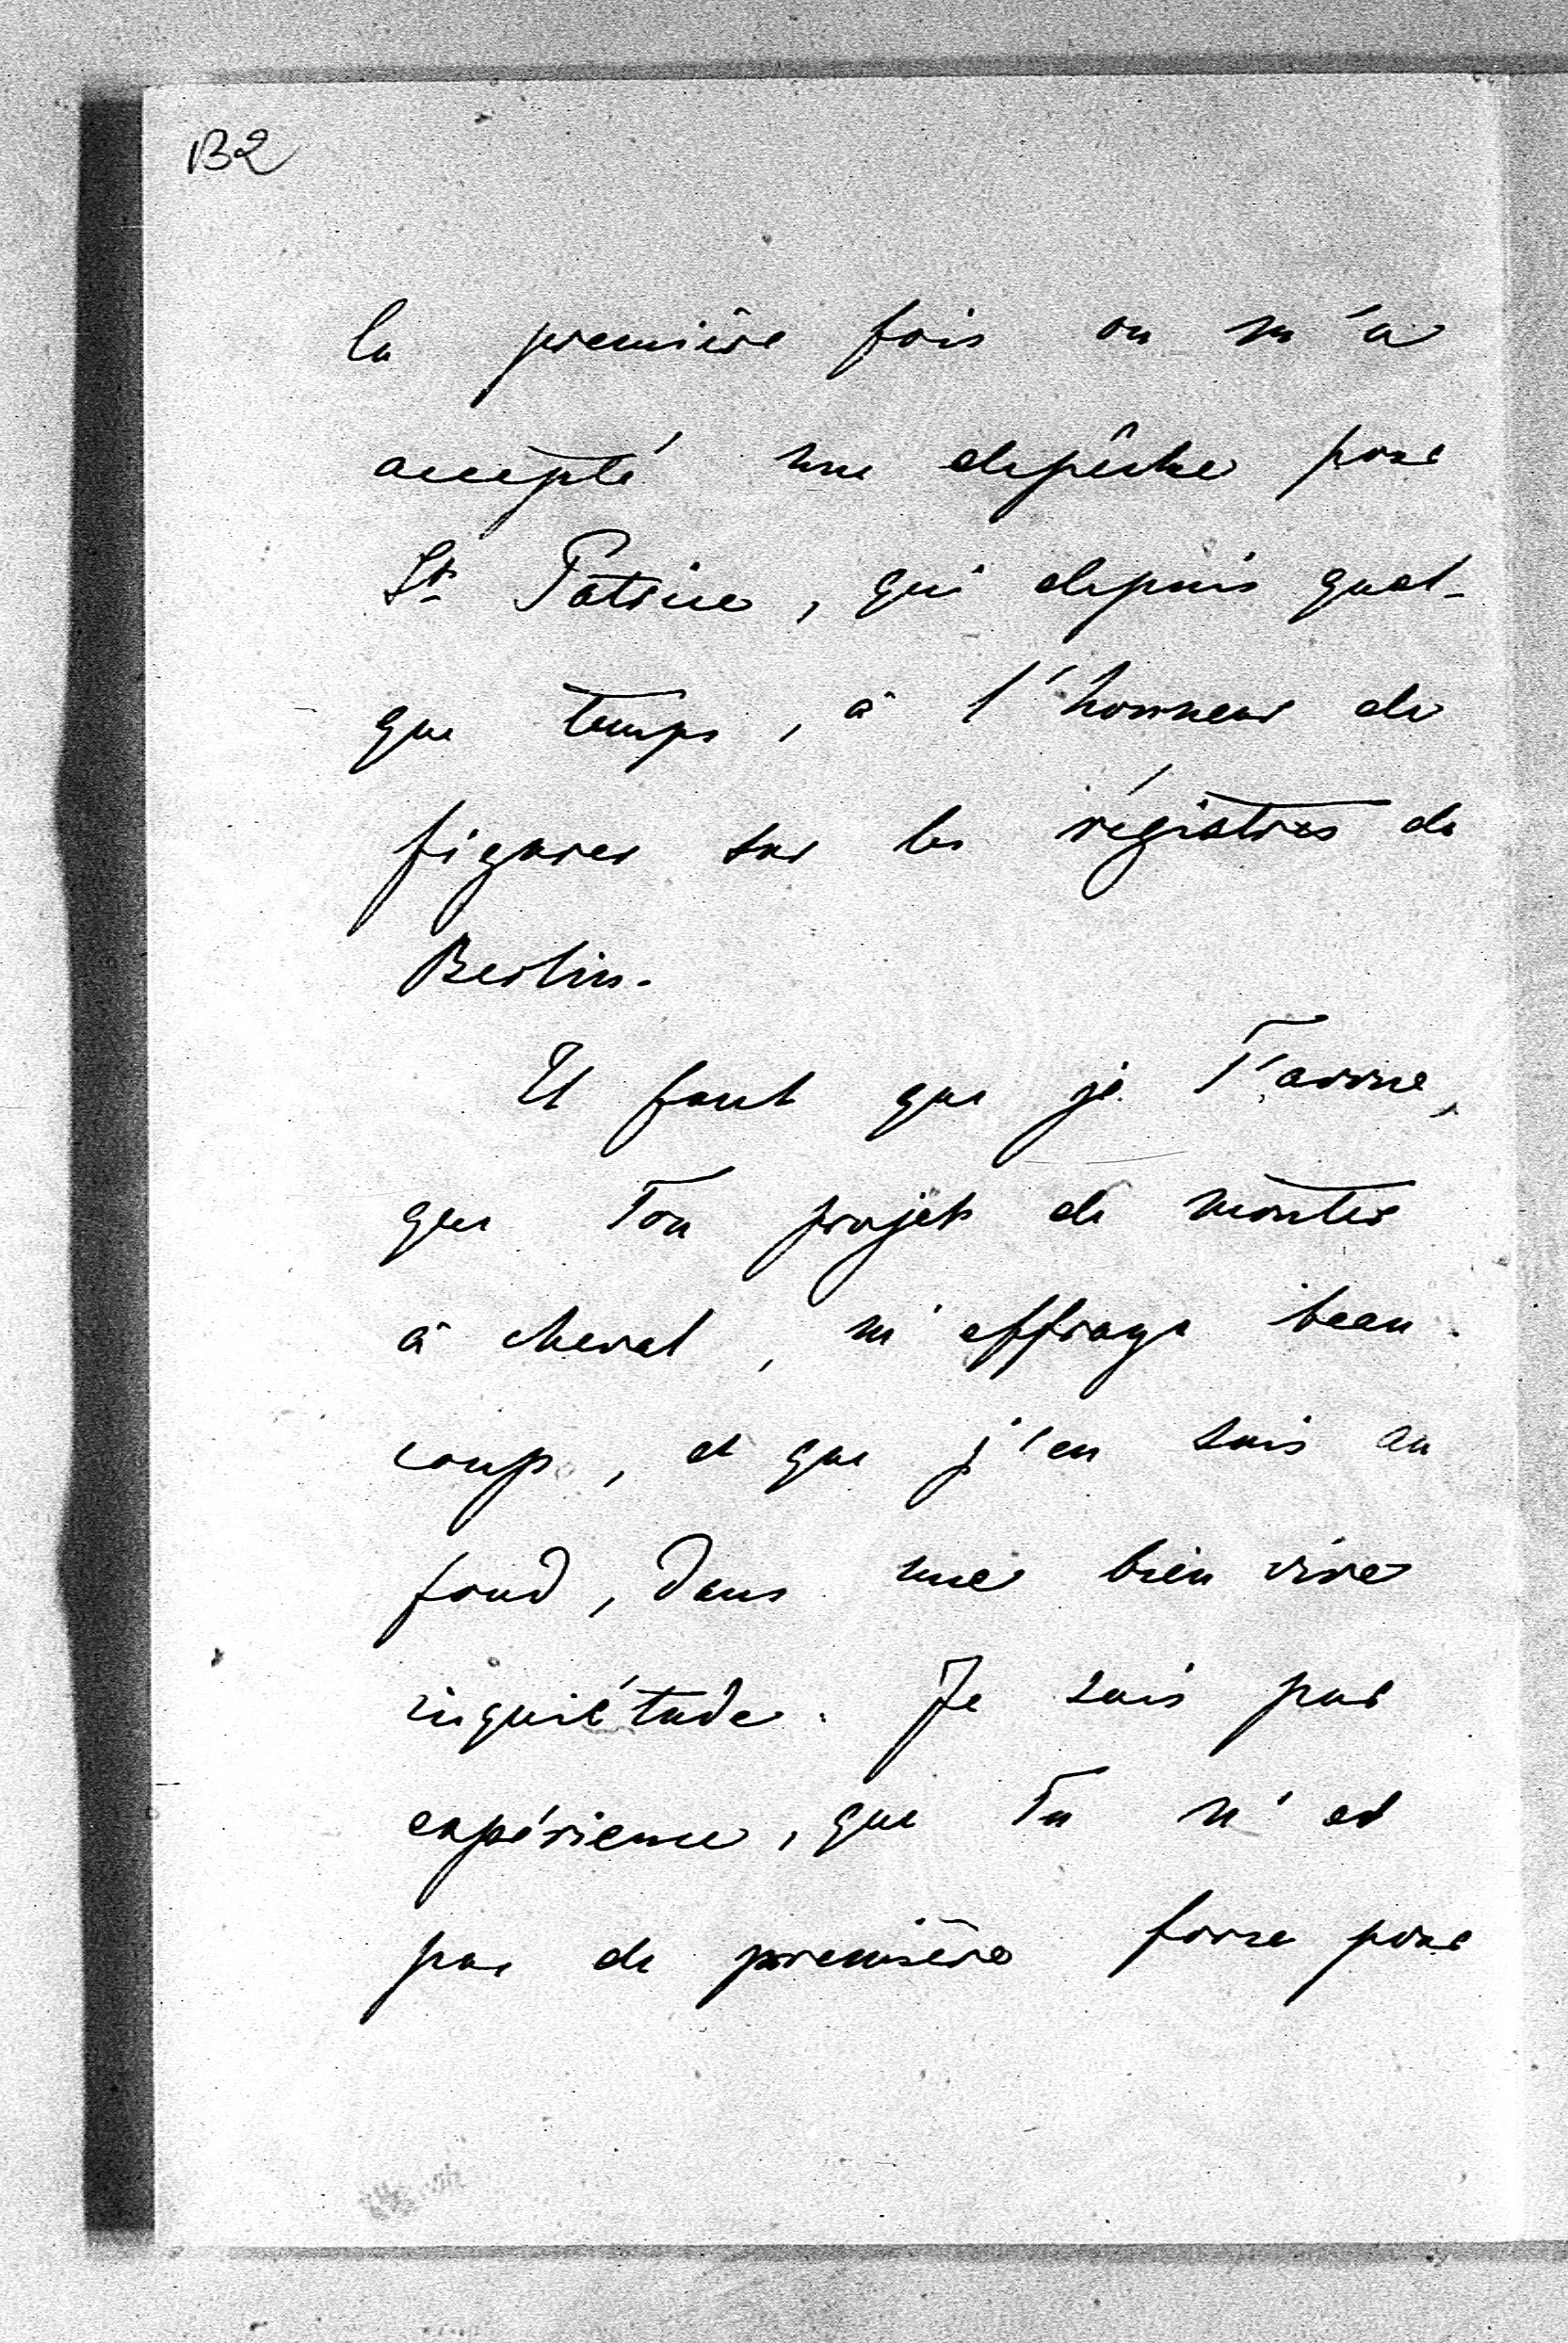 B2
la première fois on m'a
accepté une depêche pour
St. Patrice, qui depuis quel-
que temps, à l'honneur de
figurer sur les régistres de
Berlin.
Il faut que je T'avoue,
que Ton projet de monter
à cheval, m'effraye beau-
coup, et que j'en suis au
fond, dans une bien vive
inquiétude. Je sais par
expérience, que Tu n'es
pas de première force pour